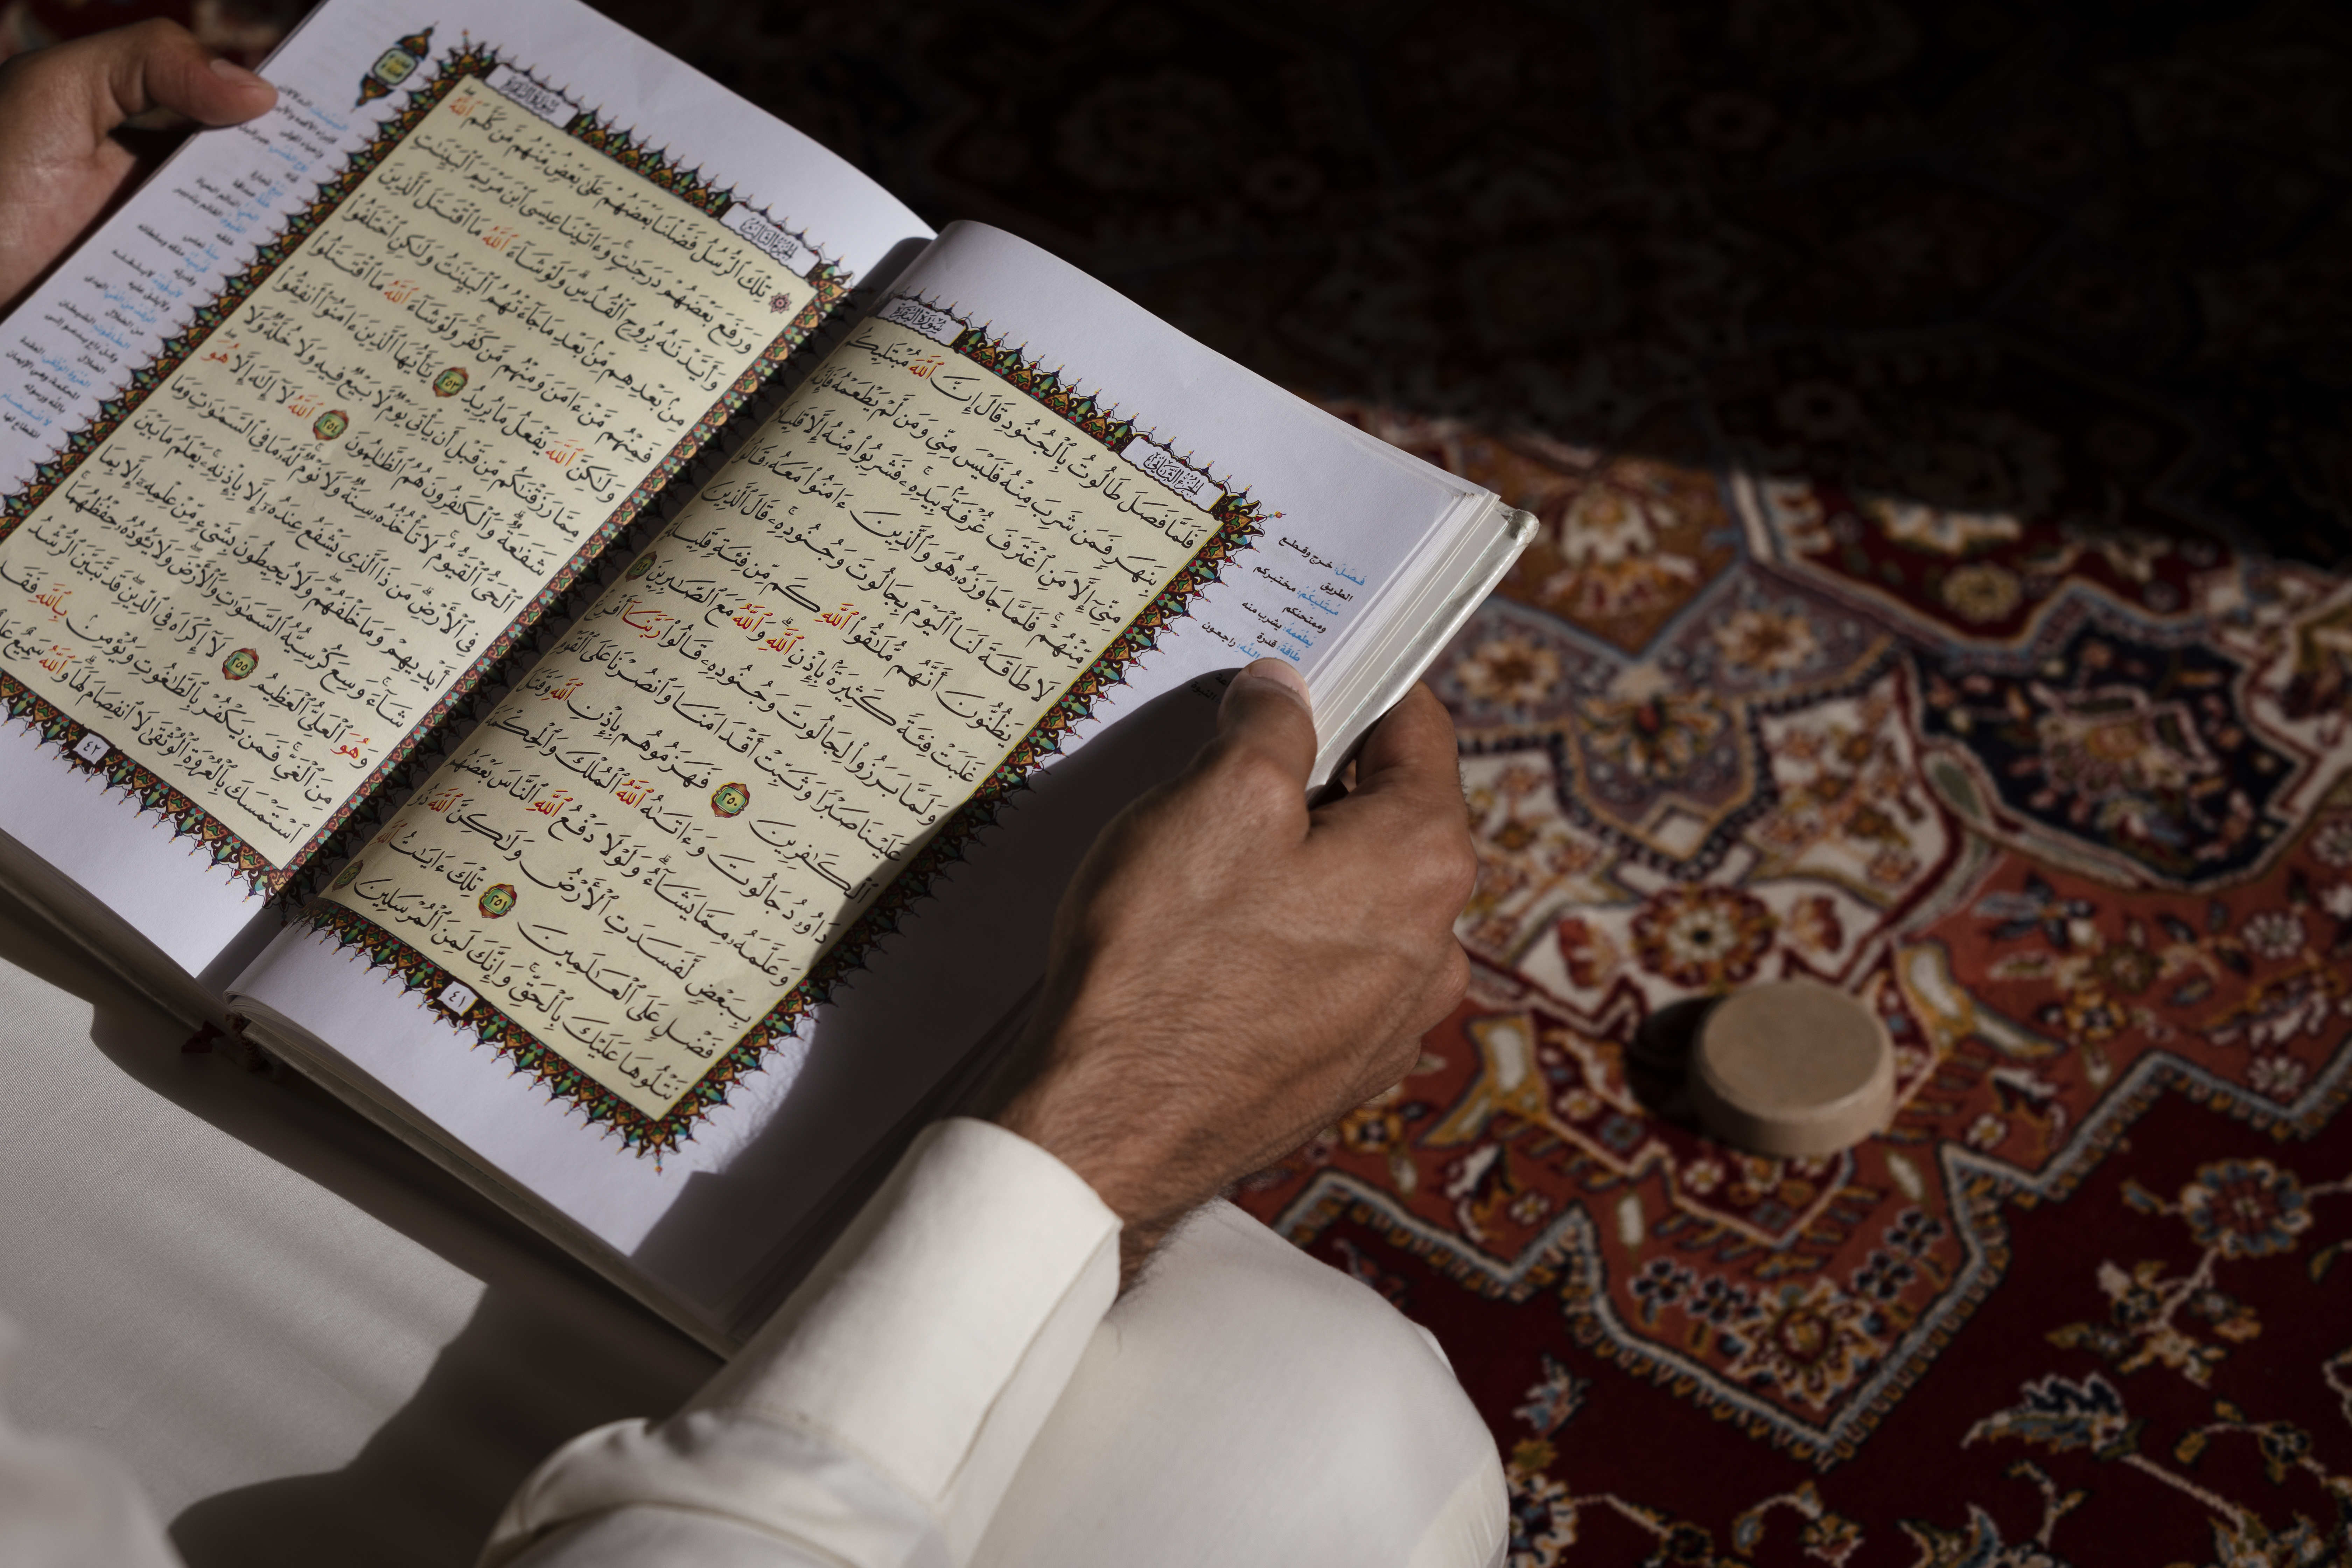 سُورَةُ البَقَرَةِ
الجُزْءُ الثَّانِي
فَلَمَّا فَصَلَ طَالُوتُ بِٱلْجُنُودِ قَالَ إِنَّ ٱللَّهَ مُبْتَلِيكُم
بِنَهَرٍ فَمَن شَرِبَ مِنْهُ فَلَيْسَ مِنِّى وَمَن لَّمْ يَطْعَمْهُ فَإِنَّهُۥ
مِنِّىٓ إِلَّا مَنِ ٱغْتَرَفَ غُرْفَةًۢ بِيَدِهِۦ ۚ فَشَرِبُوا۟ مِنْهُ إِلَّا قَلِيلًا
مِّنْهُمْ ۚ فَلَمَّا جَاوَزَهُۥ هُوَ وَٱلَّذِينَ ءَامَنُوا۟ مَعَهُۥ قَالُوا۟
لَا طَاقَةَ لَنَا ٱلْيَوْمَ بِجَالُوتَ وَجُنُودِهِۦ ۚ قَالَ ٱلَّذِينَ
يَظُنُّونَ أَنَّهُم مُّلَٰقُوا۟ ٱللَّهِ كَم مِّن فِئَةٍ قَلِيلَةٍ
غَلَبَتْ فِئَةً كَثِيرَةًۢ بِإِذْنِ ٱللَّهِ ۗ وَٱللَّهُ مَعَ ٱلصَّٰبِرِينَ
وَلَمَّا بَرَزُوا۟ لِجَالُوتَ وَجُنُودِهِۦ قَالُوا۟ رَبَّنَآ أَفْرِغْ
عَلَيْنَا صَبْرًا وَثَبِّتْ أَقْدَامَنَا وَٱنصُرْنَا عَلَى ٱلْقَوْمِ
ٱلْكَٰفِرِينَ ٢٥٠ فَهَزَمُوهُم بِإِذْنِ ٱللَّهِ وَقَتَلَ
دَاوُۥدُ جَالُوتَ وَءَاتَىٰهُ ٱللَّهُ ٱلْمُلْكَ وَٱلْحِكْمَةَ
وَعَلَّمَهُۥ مِمَّا يَشَآءُ ۗ وَلَوْلَا دَفْعُ ٱللَّهِ ٱلنَّاسَ بَعْضَهُم
بِبَعْضٍ لَّفَسَدَتِ ٱلْأَرْضُ وَلَٰكِنَّ ٱللَّهَ ذُو
فَضْلٍ عَلَى ٱلْعَٰلَمِينَ ٢٥١ تِلْكَ ءَايَٰتُ ٱللَّهِ
نَتْلُوهَا عَلَيْكَ بِٱلْحَقِّ ۚ وَإِنَّكَ لَمِنَ ٱلْمُرْسَلِينَ
٤١
فصل: خرج وقطع
الطريق
مبتليكم: مختبركم
وممتحنكم
يطعمه: يشرب منه
طاقة: قدرة
سُورَةُ البَقَرَةِ
الجُزْءُ الثَّالِثُ
تِلْكَ ٱلرُّسُلُ فَضَّلْنَا بَعْضَهُمْ عَلَىٰ بَعْضٍ ۘ مِّنْهُم مَّن كَلَّمَ ٱللَّهُ
وَرَفَعَ بَعْضَهُمْ دَرَجَٰتٍ ۚ وَءَاتَيْنَا عِيسَى ٱبْنَ مَرْيَمَ ٱلْبَيِّنَٰتِ
وَأَيَّدْنَٰهُ بِرُوحِ ٱلْقُدُسِ ۗ وَلَوْ شَآءَ ٱللَّهُ مَا ٱقْتَتَلَ ٱلَّذِينَ
مِنۢ بَعْدِهِم مِّنۢ بَعْدِ مَا جَآءَتْهُمُ ٱلْبَيِّنَٰتُ وَلَٰكِنِ ٱخْتَلَفُوا۟
فَمِنْهُم مَّنْ ءَامَنَ وَمِنْهُم مَّن كَفَرَ ۚ وَلَوْ شَآءَ ٱللَّهُ مَا ٱقْتَتَلُوا۟
وَلَٰكِنَّ ٱللَّهَ يَفْعَلُ مَا يُرِيدُ ٢٥٣ يَٰٓأَيُّهَا ٱلَّذِينَ ءَامَنُوٓا۟ أَنفِقُوا۟
مِمَّا رَزَقْنَٰكُم مِّن قَبْلِ أَن يَأْتِىَ يَوْمٌ لَّا بَيْعٌ فِيهِ وَلَا خُلَّةٌ وَلَا
شَفَٰعَةٌ ۗ وَٱلْكَٰفِرُونَ هُمُ ٱلظَّٰلِمُونَ ٢٥٤ ٱللَّهُ لَآ إِلَٰهَ إِلَّا هُوَ
ٱلْحَىُّ ٱلْقَيُّومُ ۚ لَا تَأْخُذُهُۥ سِنَةٌ وَلَا نَوْمٌ ۚ لَّهُۥ مَا فِى ٱلسَّمَٰوَٰتِ وَمَا
فِى ٱلْأَرْضِ ۗ مَن ذَا ٱلَّذِى يَشْفَعُ عِندَهُۥٓ إِلَّا بِإِذْنِهِۦ ۚ يَعْلَمُ مَا بَيْنَ
أَيْدِيهِمْ وَمَا خَلْفَهُمْ ۖ وَلَا يُحِيطُونَ بِشَىْءٍ مِّنْ عِلْمِهِۦٓ إِلَّا بِمَا
شَآءَ ۚ وَسِعَ كُرْسِيُّهُ ٱلسَّمَٰوَٰتِ وَٱلْأَرْضَ ۖ وَلَا يَـُٔودُهُۥ حِفْظُهُمَا ۚ
وَهُوَ ٱلْعَلِىُّ ٱلْعَظِيمُ ٢٥٥ لَآ إِكْرَاهَ فِى ٱلدِّينِ ۖ قَد تَّبَيَّنَ ٱلرُّشْدُ
مِنَ ٱلْغَىِّ ۚ فَمَن يَكْفُرْ بِٱلطَّٰغُوتِ وَيُؤْمِنۢ بِٱللَّهِ فَقَدِ
ٱسْتَمْسَكَ بِٱلْعُرْوَةِ ٱلْوُثْقَىٰ لَا ٱنفِصَامَ لَهَا ۗ وَٱللَّهُ سَمِيعٌ
٤٢